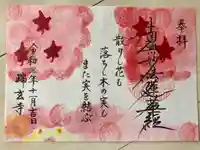 奉拝
散りし花も
落ちし木の実も
また実を結ぶ
令和三年十一月吉日
瑞玄寺